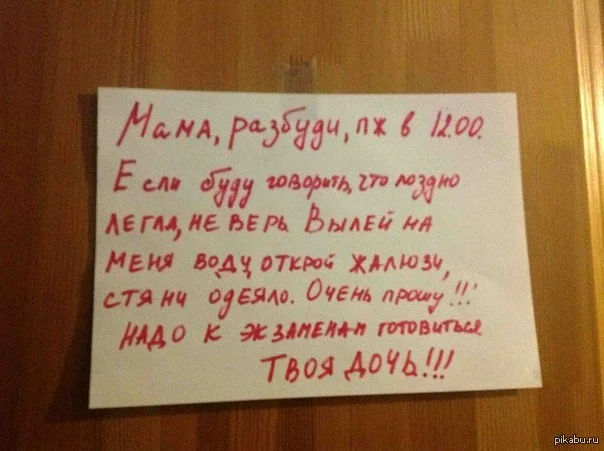 Мама, разбуди, пж в 12.00.
Если буду говорить, что поздно
легла, не верь Вылей на
меня воду, открой жалюзи,
стяни одеяло. Очень прошу!!!
Надо к экзаменам готовиться
Твоя дочь!!!
pikabu.ru